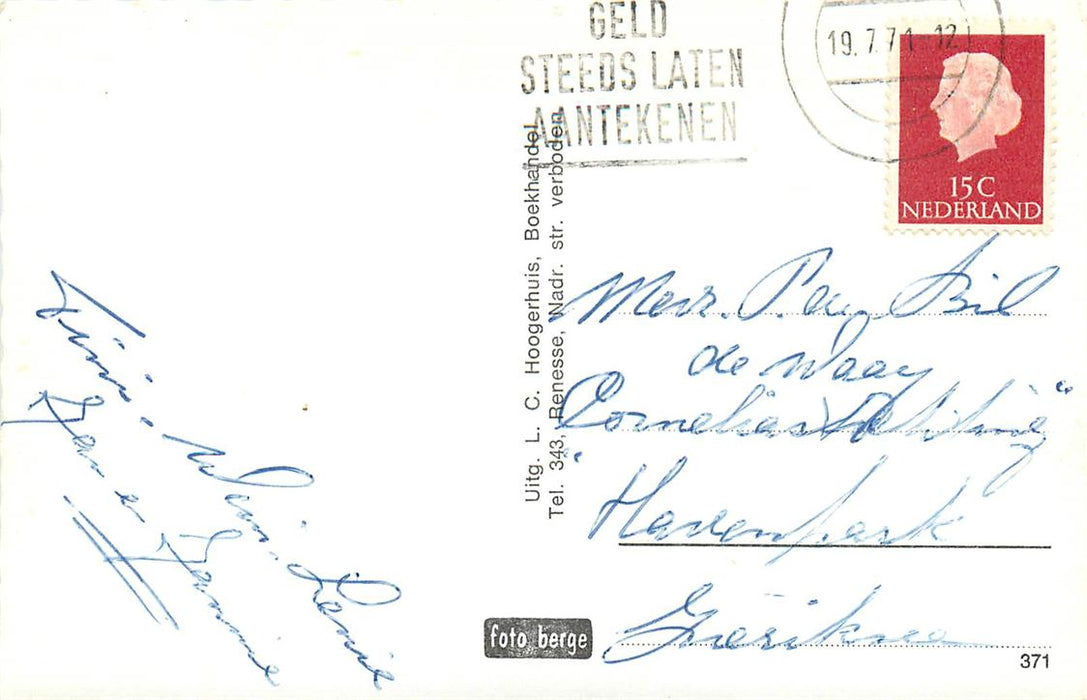 GELD
STEEDS LATEN
AANTEKENEN
19.7.71-12
15 C
NEDERLAND
Uitg. L. C. Hoogerhuis, Boekhandel
Tel. 343, Renesse, Nadr. str. verboden
Mevr. P. Bil
de Waay
Cornelia
"Havenpark
Zierikzee
Wim. Lenie
foto berge
371